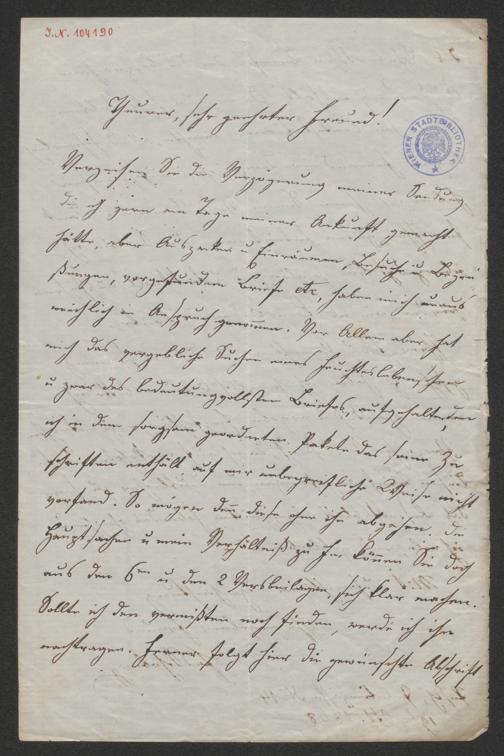 J. N. 104190
WIENER STADTBIBLIOTHEK
Theurer, sehr geehrter Freund!
Verzeihen Sie die Verzögerung meiner Sendung
die ich gern am Tage meiner Ankunft gemacht
hätte, aber Auspacken u Einräumen, Besuche u Begrü
ßungen, vorgefundene Briefe etc, haben mich
reichlich in Anspruch genommen. Vor Allem aber hat
mich das vergebliche Suchen eines Feuchtersleben'schen
u zwar des bedeutungvollsten Briefes, aufgehalten, den
ich in dem sorgsam geordneten Pakete das seine Zu
schriften enthält auf mir unbegreifliche Weise nicht
vorfand. So mögen denn diese ohne ihn abgehen, die
Hauptsachen u mein Verhältniß zu ihm können Sie doch
aus den 6 u den 2 Versbeilagen, sich klar machen.
Sollte ich den vermißten noch finden, werde ich ihn
nachtragen. Ferner folgt hier die gewünschte Abschrift